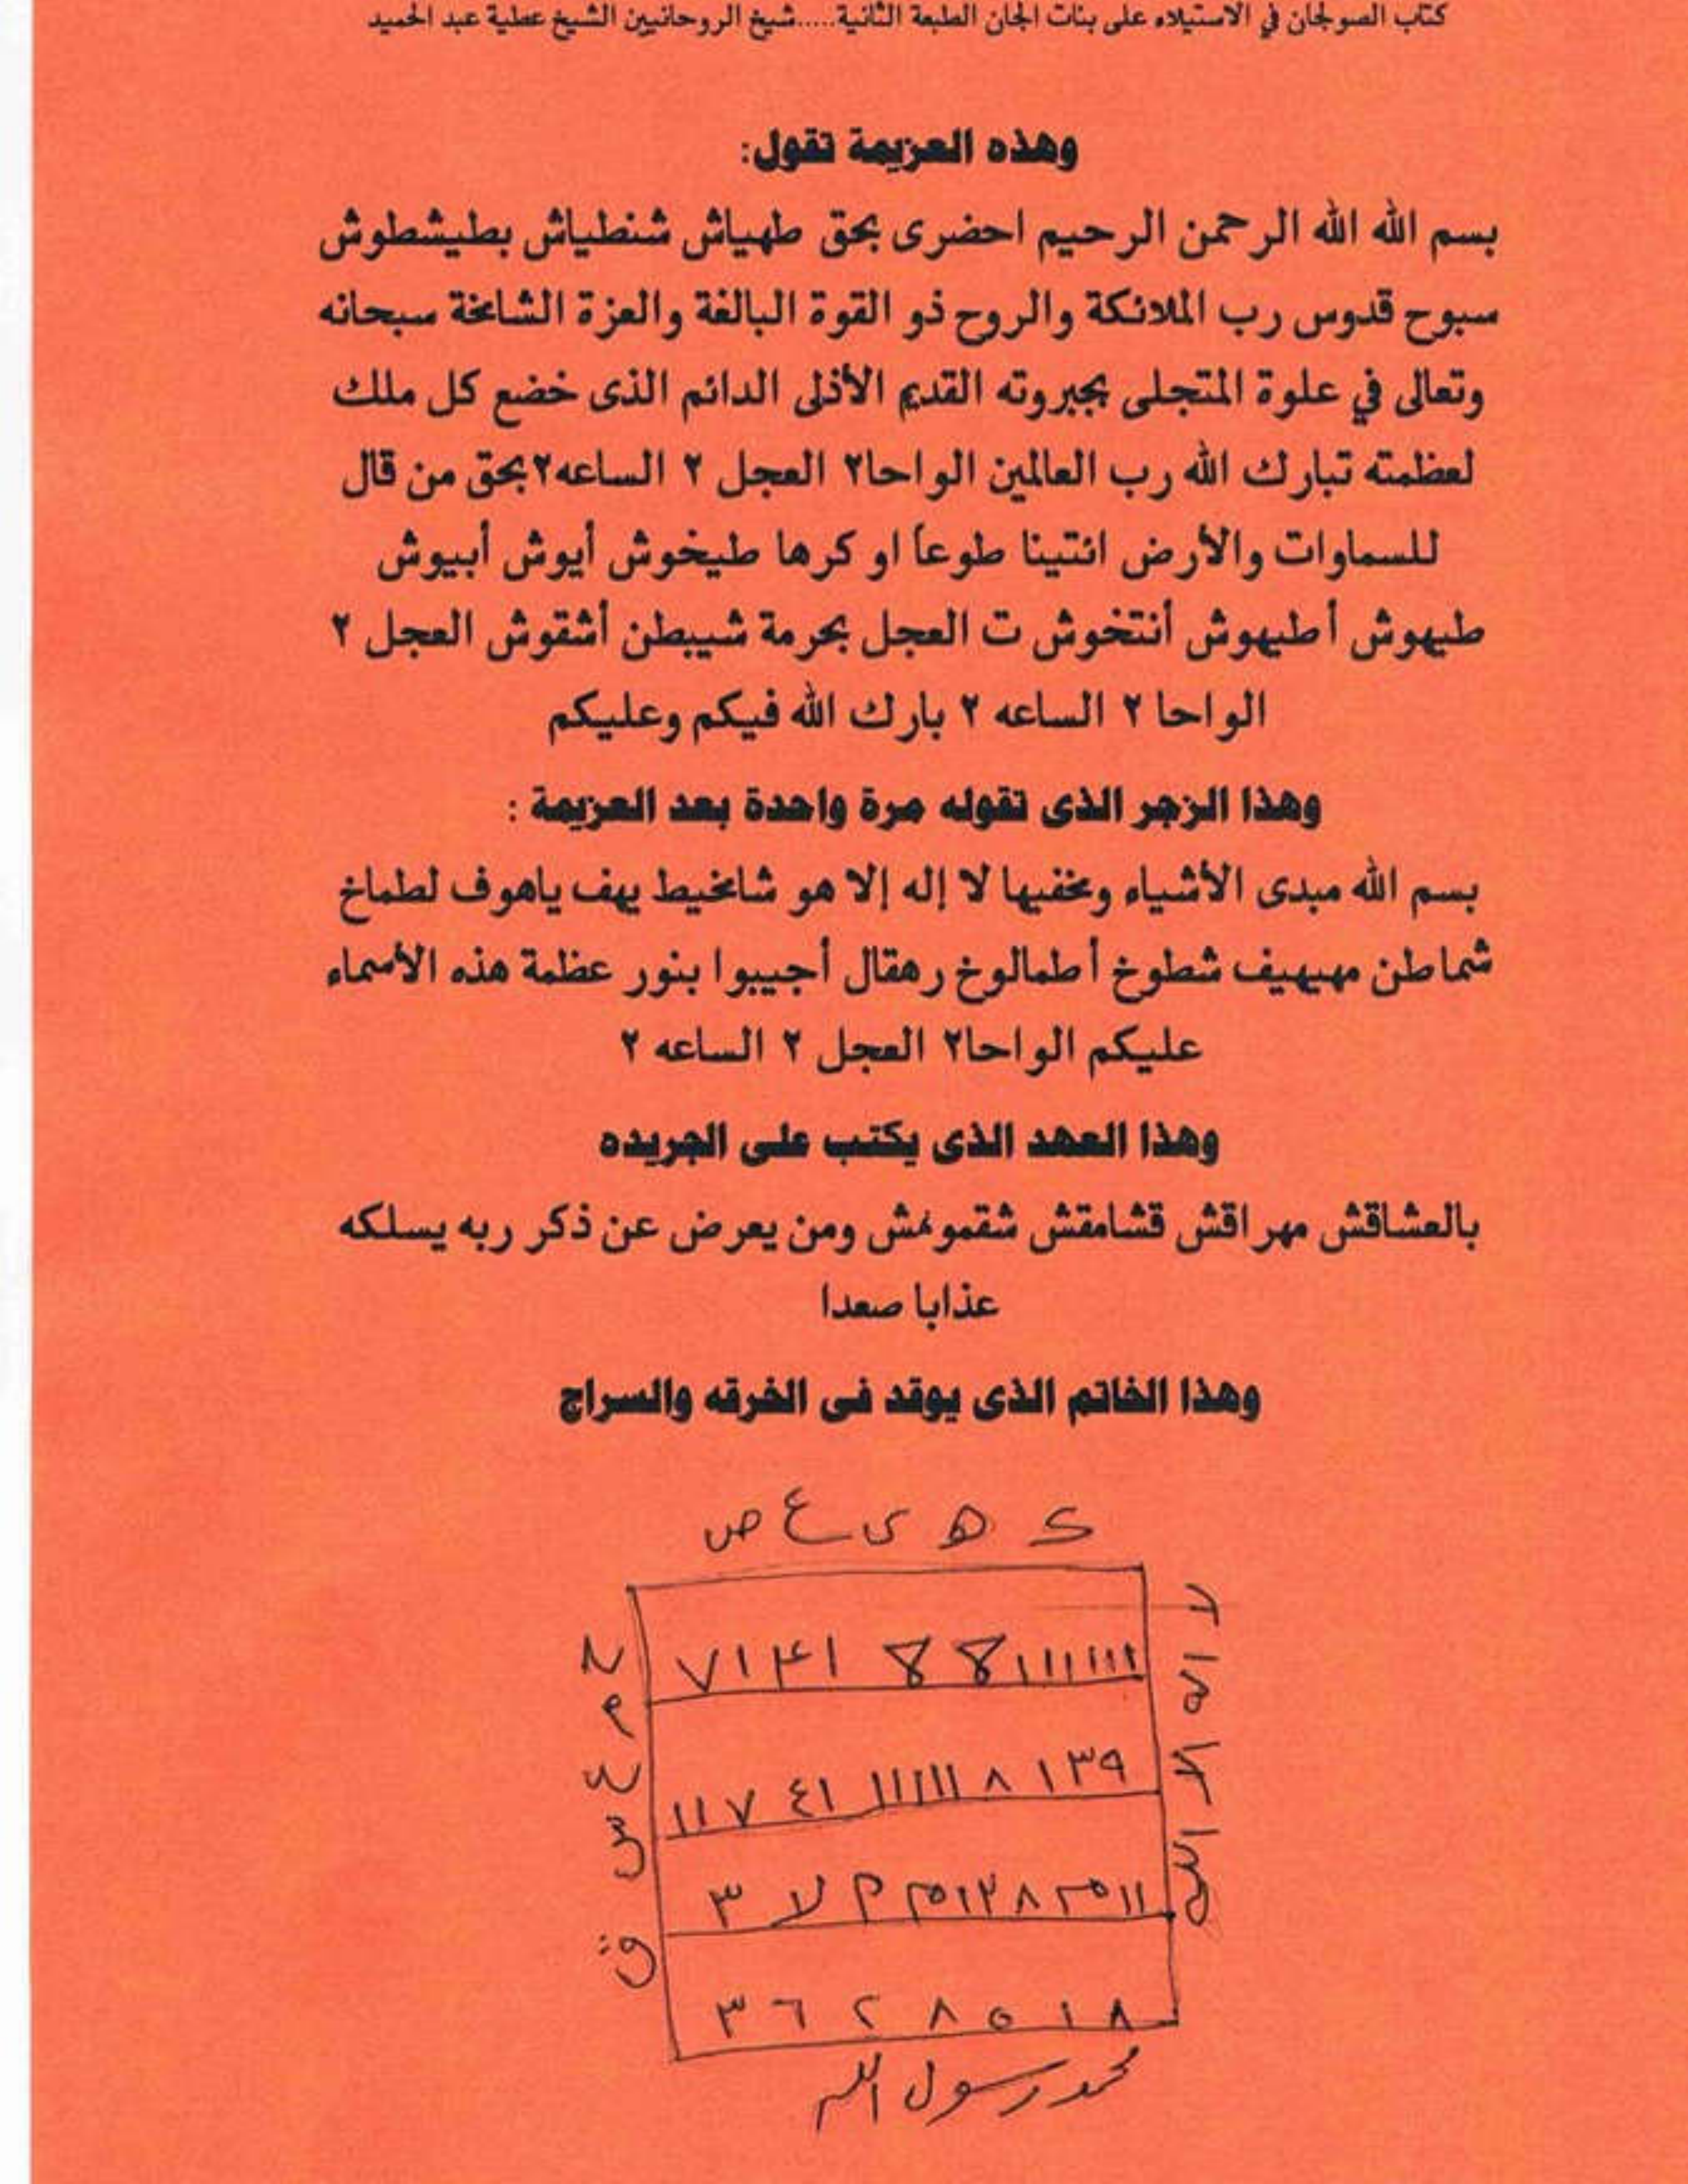 كتاب الصولجان في الاستيلاء على بنات الجان الطبعة الثانية.....شيخ الروحانيين الشيخ عطية عبد الحميد
وهذه العزيمة تقول:
بسم الله الله الرحمن الرحيم احضرى بحق طهياش شنطياش بطيشطوش
سبوح قدوس رب الملائكة والروح ذو القوة البالغة والعزة الشامخة سبحانه
وتعالى في علوة المتجلى بجبروته القديم الأذلى الدائم الذى خضع كل ملك
لعظمته تبارك الله رب العالمين الواحا٢ العجل ٢ الساعه٢بحق من قال
للسماوات والأرض ائتينا طوعاً او كرها طيخوش أيوش أبيوش
طيهوش أطيهوش أنتخوش ت العجل بحرمة شيبطن أشقوش العجل ٢
الواحا ٢ الساعه ٢ بارك الله فيكم وعليكم
وهذا الزجر الذى تقوله مرة واحدة بعد العزيمة :
بسم الله مبدى الأشياء ومخفيها لا إله إلا هو شامخيط يهف ياهوف لطماخ
شماطن مهيهيف شطوخ أطمالوخ رهقال أجيبوا بنور عظمة هذه الأسماء
عليكم الواحا٢ العجل ٢ الساعه ٢
وهذا العهد الذى يكتب على الجريده
بالعشاقش مهراقش قشامقش شقمونمش ومن يعرض عن ذكر ربه يسلكه
عذابا صعدا
وهذا الخاتم الذى يوقد فى الخرقه والسراج
ك ه ى ع ص
لا اله الا الله
ح م ع س ق
١١ ٧ ٤١ ١١١١١١ ٨ ١ ٣٩
٣ ٦ ٢ ٨ ٥ ١ ٨
محمد رسول الله